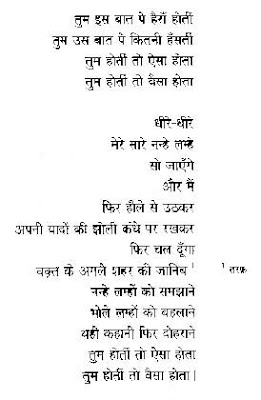 तुम इस बात पे हैराँ होतीं
तुम उस बात पे कितनी हँसतीं
तुम होतीं तो ऐसा होता
तुम होतीं तो वैसा होता
धीरे-धीरे
मेरे सारे नन्हे लम्हे
सो जाएँगे
और मैं
फिर हौले से उठकर
अपनी यादों की झोली कंधे पर रखकर
फिर चल दूँगा
वक़्त के अगले शहर की जानिब¹ ¹ तरफ़
नन्हे लम्हों को समझाने
भोले लम्हों को बहलाने
यही कहानी फिर दोहराने
तुम होतीं तो ऐसा होता
तुम होतीं तो वैसा होता।